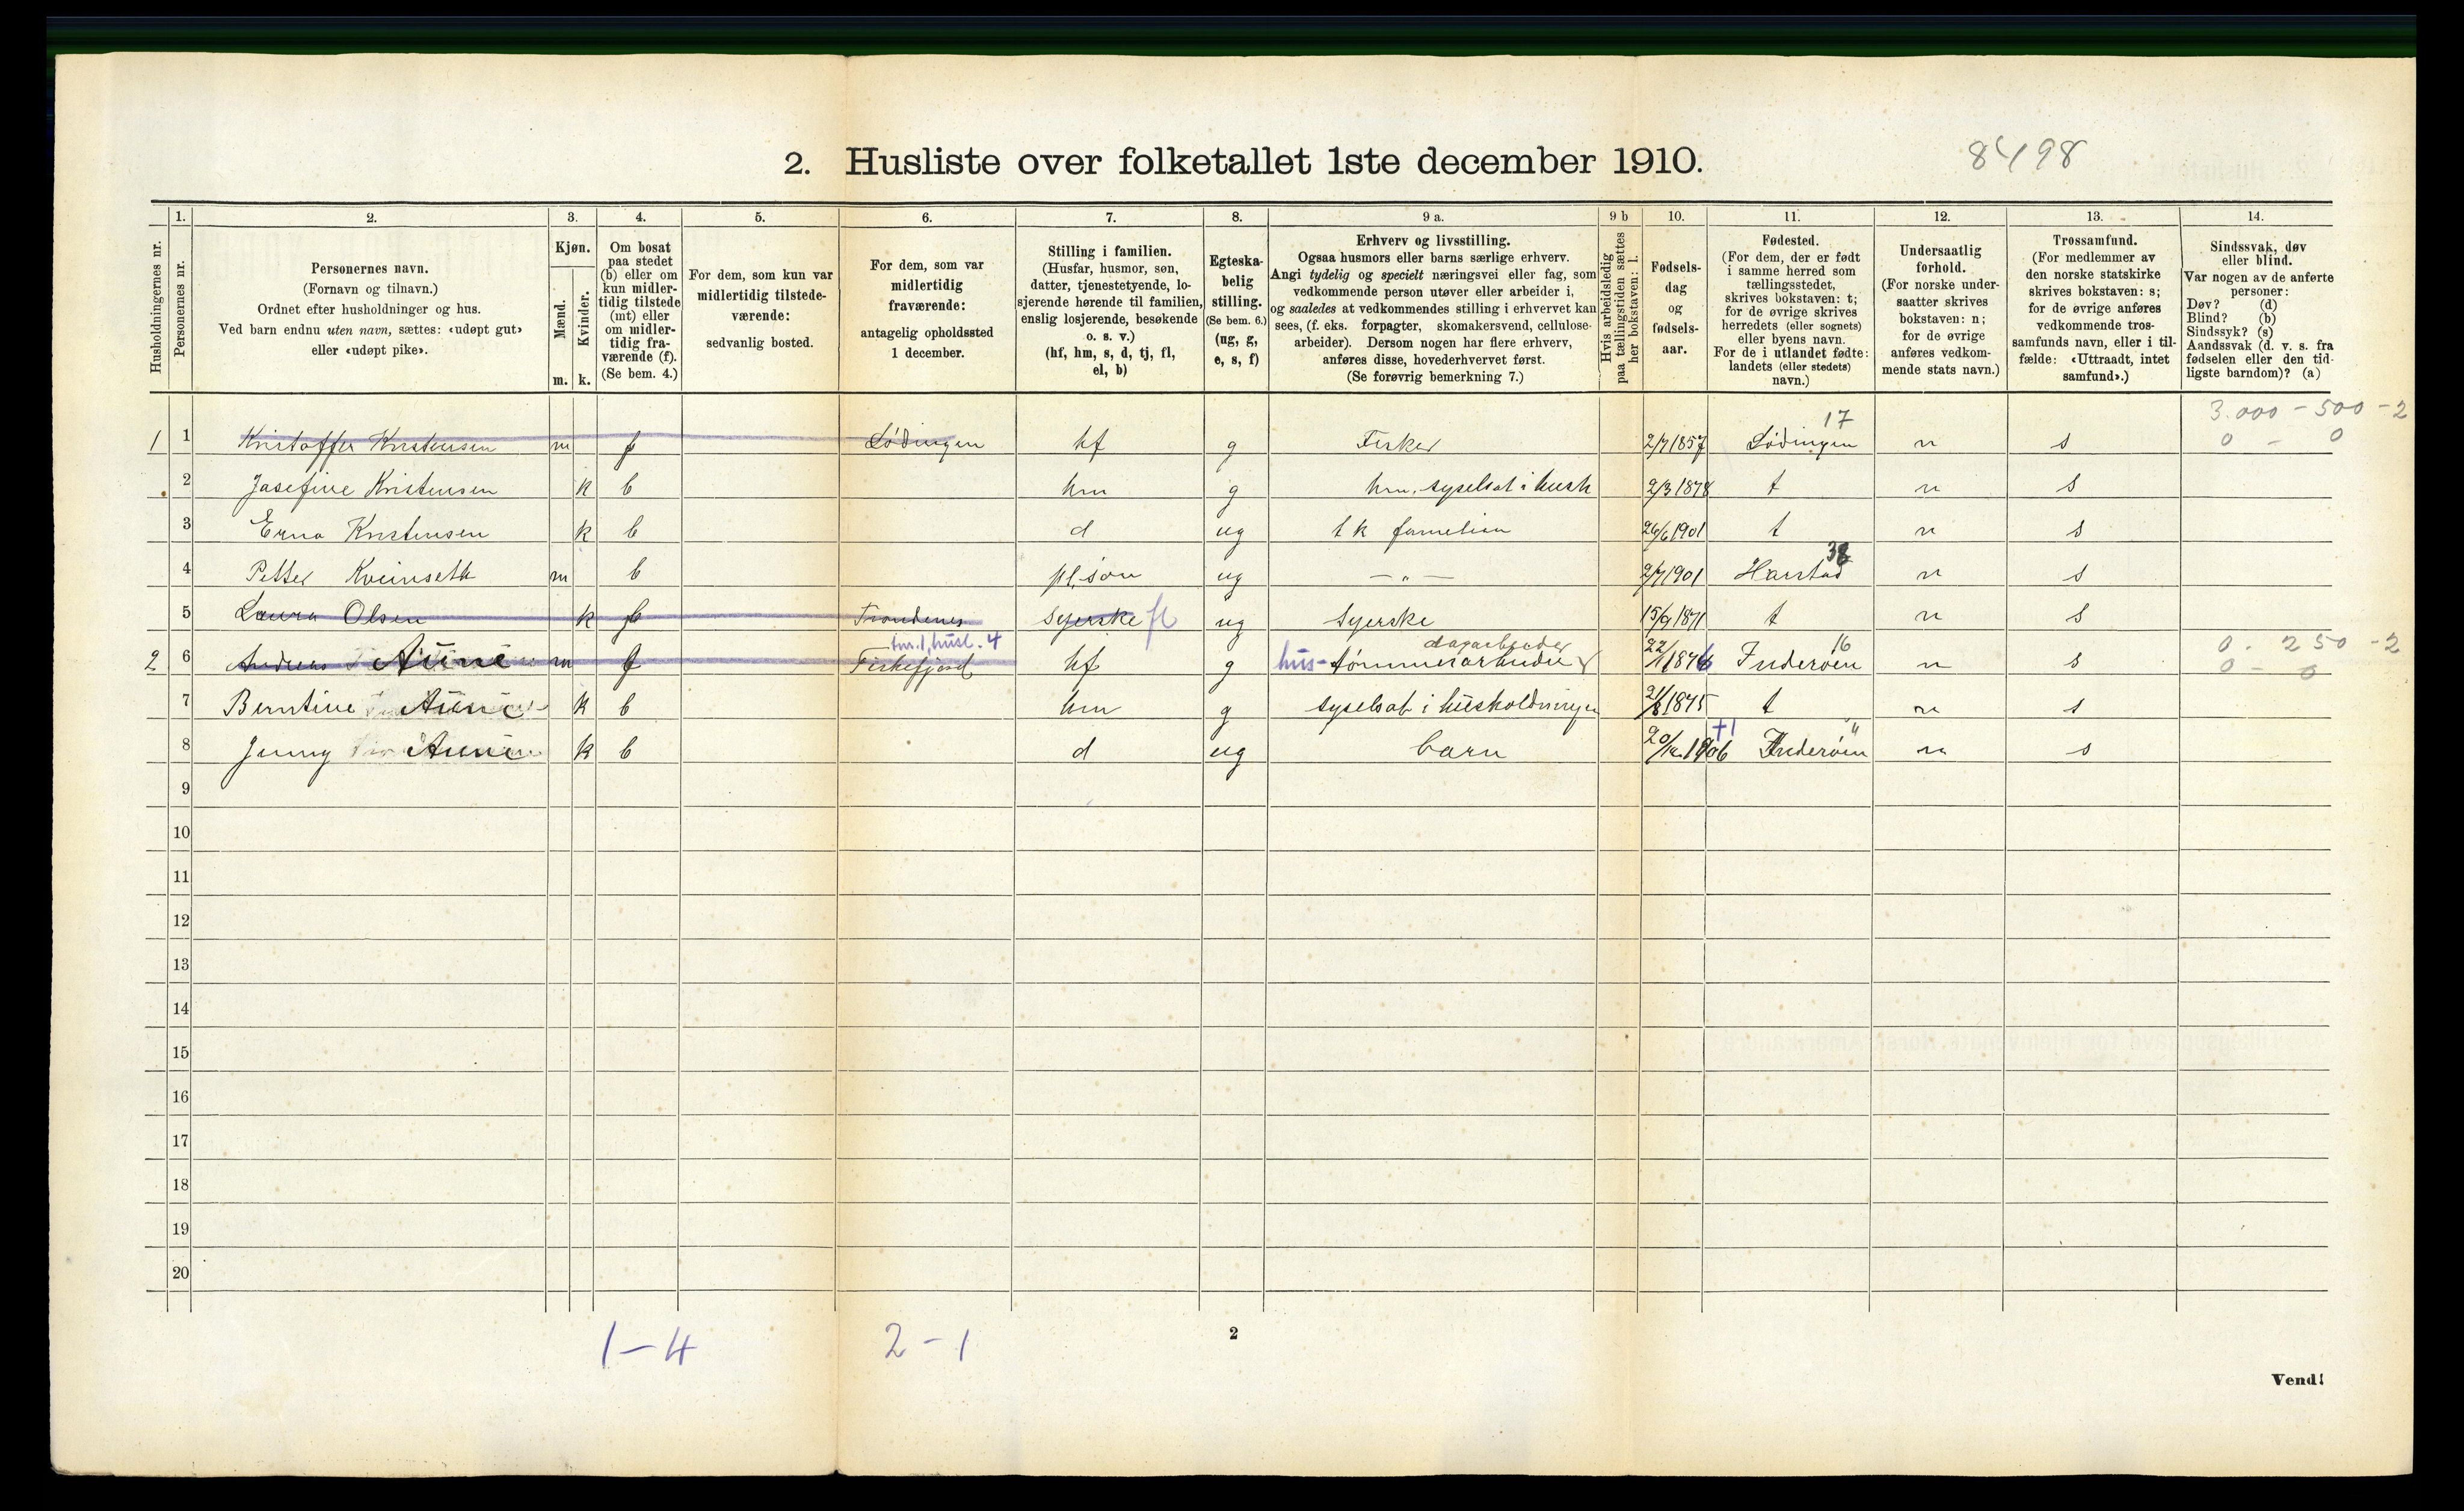 8498
2. Husliste over folketallet 1ste december 1910.
1. 2. 3. 4. 5. 6. 7. 8. 9 a. 9 b 10. 11. 12. 13. 14.
Husholdningernes nr.
Personernes nr.
Personernes navn.
(Fornavn og tilnavn.)
Ordnet efter husholdninger og hus.
Ved barn endnu uten navn, sættes: «udøpt gut»
eller «udøpt pike».
Kjøn.
Mænd.
Kvinder.
m. k.
Om bosat
paa stedet
(b) eller om
kun midler-
tidig tilstede
(mt) eller
om midler-
tidig fra-
værende (f).
(Se bem. 4.)
For dem, som kun var
midlertidig tilstede-
værende:
sedvanlig bosted.
For dem, som var
midlertidig
fraværende:
antagelig opholdssted
1 december.
Stilling i familien.
(Husfar, husmor, søn,
datter, tjenestetyende, lo-
sjerende hørende til familien,
enslig losjerende, besøkende
o. s. v.)
(hf, hm, s, d, tj, fl,
el, b)
Egteska-
belig
stilling.
(Se bem. 6.)
(ug, g,
e, s, f)
Erhverv og livsstilling.
Ogsaa husmors eller barns særlige erhverv.
Angi tydelig og specielt næringsvei eller fag, som
vedkommende person utøver eller arbeider i,
og saaledes at vedkommendes stilling i erhvervet kan
sees, (f. eks. forpagter, skomakersvend, cellulose-
arbeider). Dersom nogen har flere erhverv,
anføres disse, hovederhvervet først.
(Se forøvrig bemerkning 7.)
Hvis arbeidsledig
paa tællingstiden sættes
her bokstaven: l.
Fødsels-
dag
og
fødsels-
aar.
Fødested.
(For dem, der er født
i samme herred som
tællingsstedet,
skrives bokstaven: t;
for de øvrige skrives
herredets (eller sognets)
eller byens navn.
For de i utlandet fødte:
landets (eller stedets)
navn.)
Undersaatlig
forhold.
(For norske under-
saatter skrives
bokstaven: n;
for de øvrige
anføres vedkom-
mende stats navn.)
Trossamfund.
(For medlemmer av
den norske statskirke
skrives bokstaven: s;
for de øvrige anføres
vedkommende tros-
samfunds navn, eller i til-
fælde: «Uttraadt, intet
samfund».)
Sindssvak, døv
eller blind.
Var nogen av de anførte
personer:
Døv? (d)
Blind? (b)
Sindssyk? (s)
Aandssvak (d. v. s. fra
fødselen eller den tid-
ligste barndom)? (a)
17 3.000 - 500 - 2
1 1 Kristoffer Kristensen m f Lödingen hf g Fisker 2/7 1857 Lödingen n s 0 - 0
2 Josefine Kristensen k b hm g hm, syselsat i husk 2/3 1878 t n s
3 Erna Kristensen k b d ug 26/6 1901 t n s
38
4 Petter Kveinseth m b pl. søn ug — „ — 2/7 1901 Harstad n s
5 Laura Olsen k Trondenes Syerske fl ug Syerske 15/9 1871 t n s
husl. 4 dagarbeider 16 0 - 250 - 2
2 6 Andreas Aune m f Fiskefjord hf g hus-tömmerarbeider Inderöen n s 0 - 0
7 Berntine Aune k b hm g syselsat i husholdningen 1875 t n s
+1 "
8 Jenny Aune k b d ug barn 1906 Inderöen n s
9
10
11
12
13
14
15
16
17
18
19
20
1-4 2-1 2
Vend!